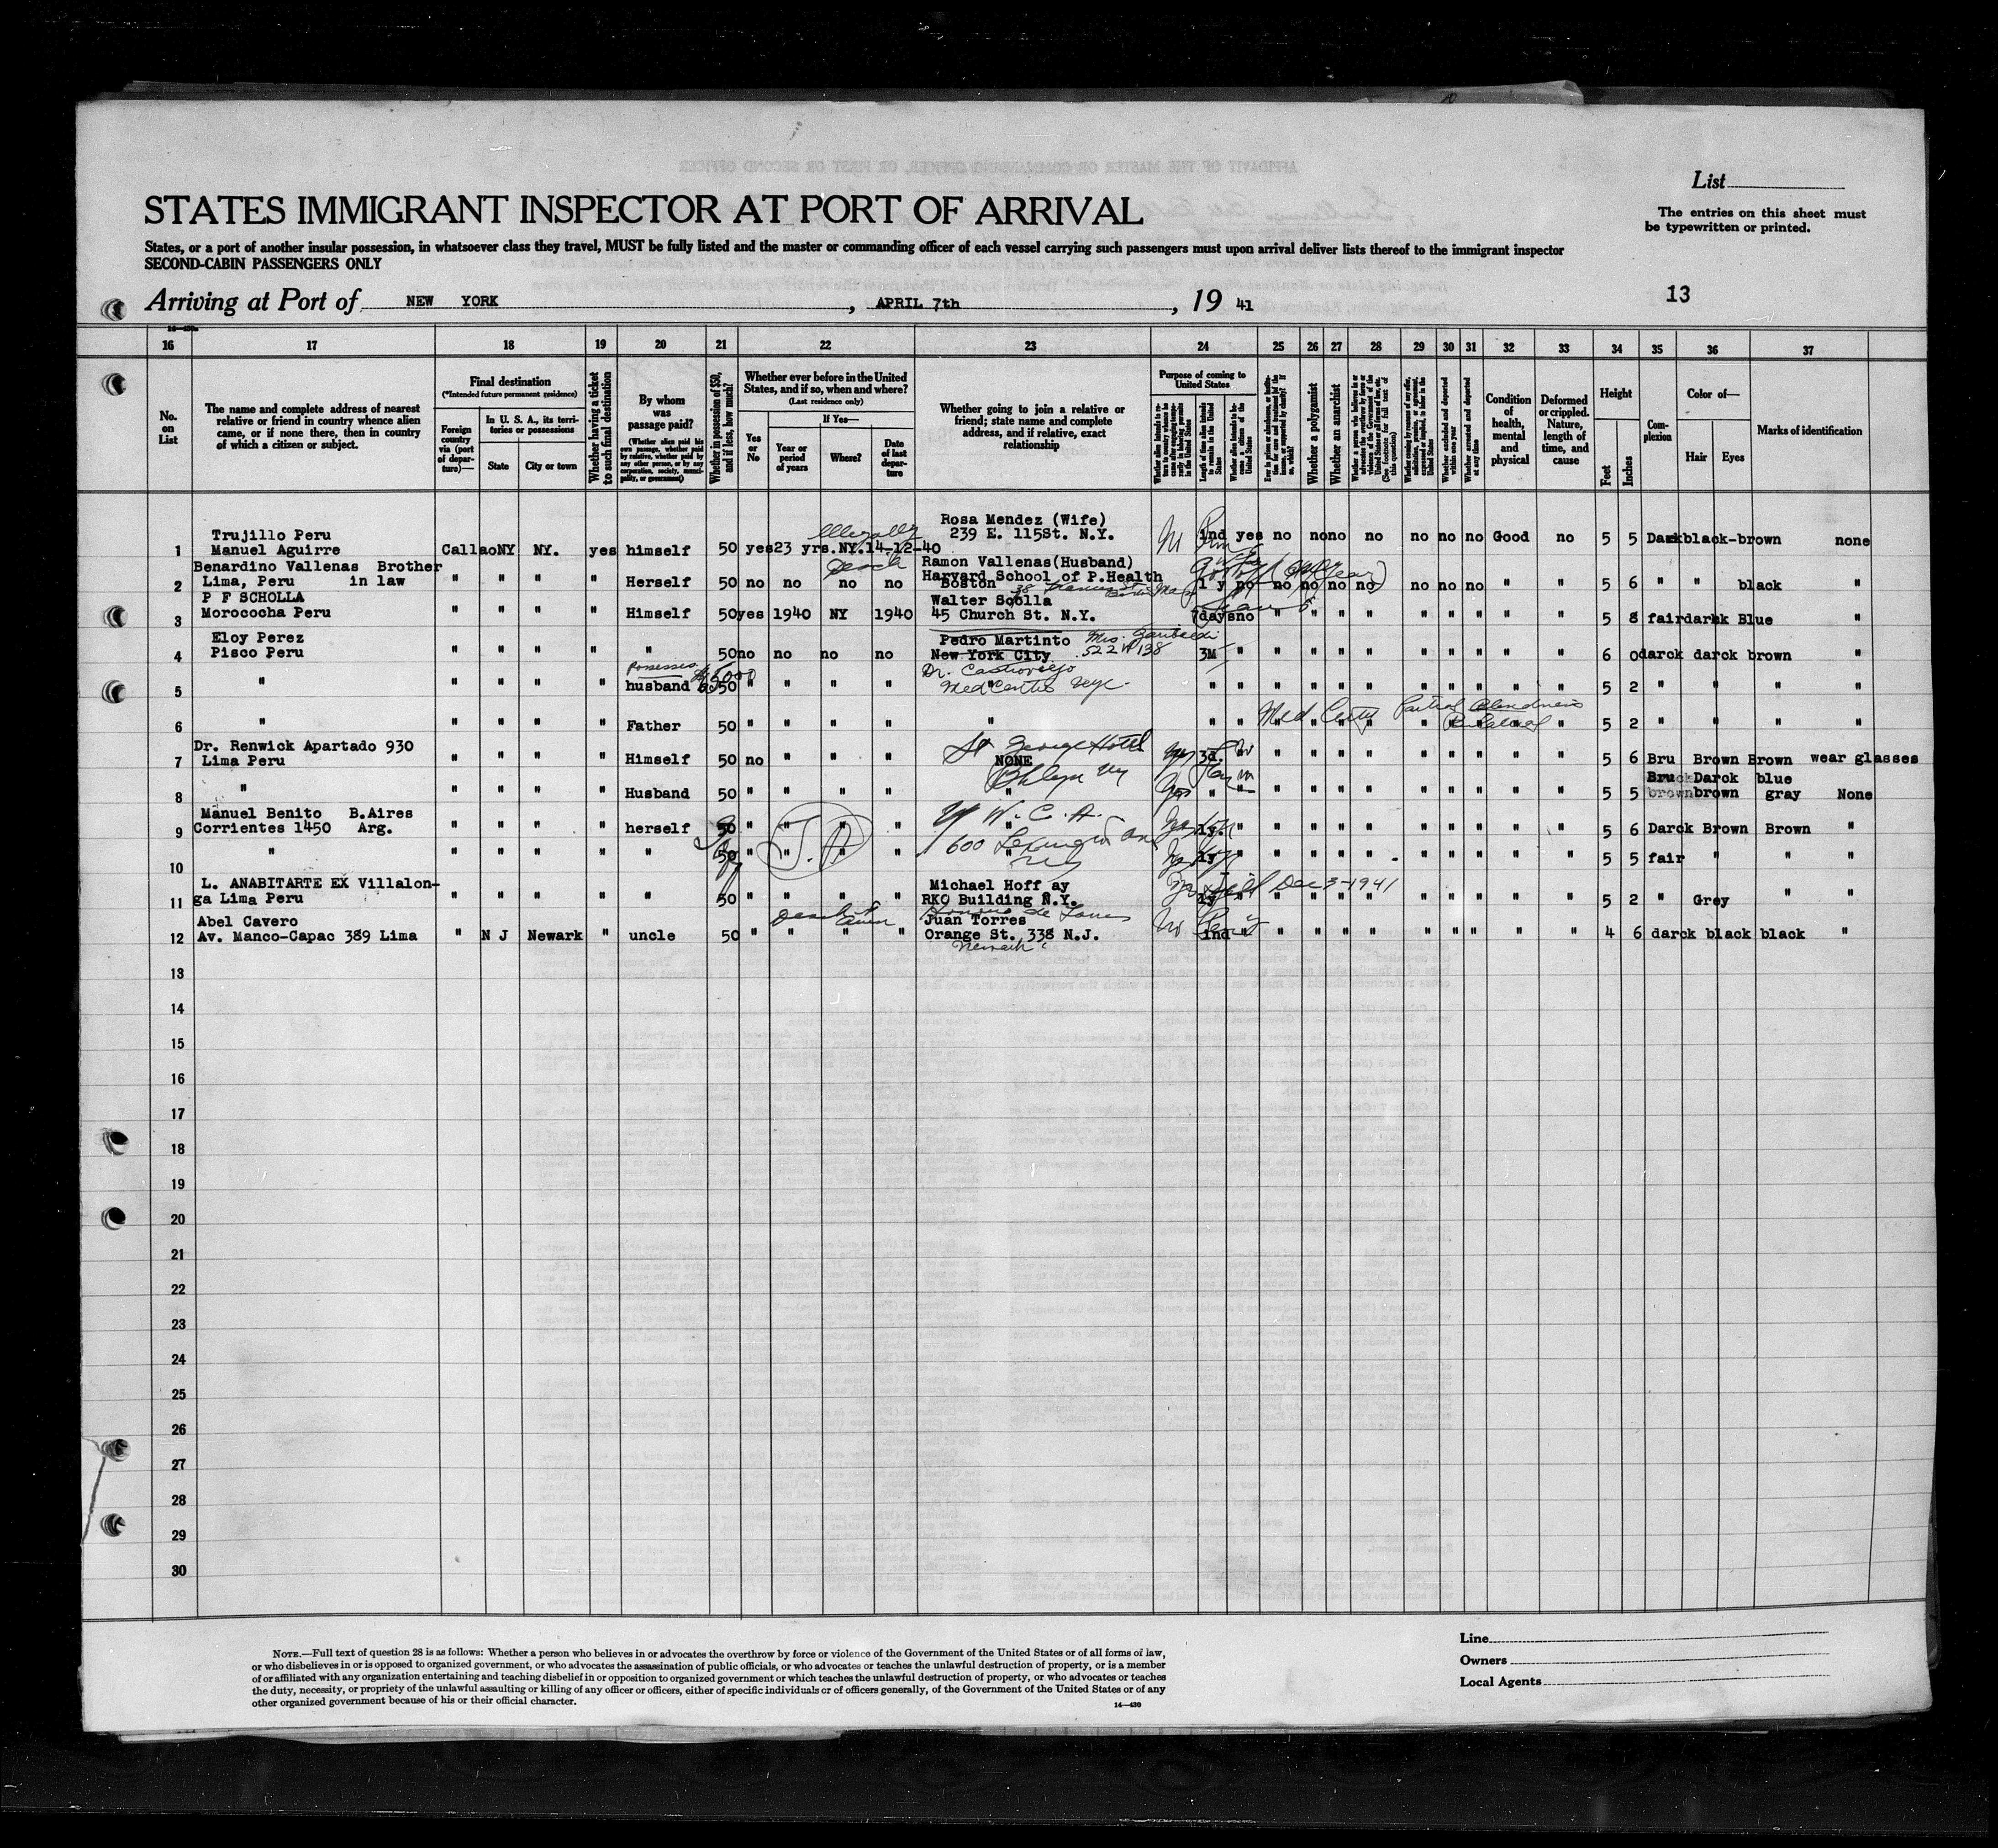 List
STATES IMMIGRANT INSPECTOR AT PORT OF ARRIVAL
The entries on this sheet must
be typewritten or printed.
States, or a port of another insular possession, in whatsoever class they travel, MUST be fully listed and the master or commanding officer of each vessel carrying such passengers must upon arrival deliver lists thereof to the immigrant inspector
SECOND-CABIN PASSENGERS ONLY
Arriving at Port of NEW YORK, APRIL 7th, 19 41
13
16 17 18 19 20 21 22 23 24 25 26 27 28 29 30 31 32 33 34 35 36 37
No. on List
The name and complete address of nearest
relative or friend in country whence alien
came, or if none there, then in country
of which a citizen or subject.
Final destination
(*Intended future permanent residence)
Foreign country via (port of departure)—
In U. S. A., its territories or possessions
State
City or town
Whether having a ticket to such final destination
By whom was passage paid?
(Whether alien paid his own passage, whether paid by relative, whether paid by any other person, or by any corporation, society, municipality, or government)
Whether in possession of $50, and if less, how much?
Whether ever before in the United
States, and if so, when and where?
(Last residence only)
If Yes—
Yes or No
Year or period of years
Where?
Date of last departure
Whether going to join a relative or
friend; state name and complete
address, and if relative, exact
relationship
Purpose of coming to
United States
Length of time alien intends to remain in the United States
Whether alien intends to become a citizen of the United States
Whether a polygamist
Whether an anarchist
Condition of health, mental and physical
Deformed or crippled. Nature, length of time, and cause
Height
Feet
Inches
Complexion
Color of—
Hair
Eyes
Marks of identification
Trujillo Peru Illegally Rosa Mendez (Wife)
239 E. 115St. N.Y.
1 Manuel Aguirre Callao NY NY. yes himself 50 yes 23 yrs. NY. 14-12-40 ind yes no no no no no no no Good no 5 5 Dark black-brown none
Benardino Vallenas Brother Ramon Vallenas(Husband)
Harvard School of P.Health
2 Lima, Peru in law " " " " Herself 50 no no no no Boston 1 y no no no no no no no no " " 5 6 " " black "
P F SCHOLLA Walter Scolla
3 Morococha Peru " " " " Himself 50 yes 1940 NY 1940 45 Church St. N.Y. 7days no " " " " " " " " " 5 8 fair dark Blue "
Eloy Perez Pedro Martinto Mrs. Garibaldi
4 Pisco Peru " " " " " 50 no no no no New York City 522 W 138 3M " " " " " " " " " " 6 0 darck darck brown "
Possesses Dr. Castroviejo
5 " " " " " husband 50 " " " " Med Center nyc. " " " " " " " " " " " 5 2 " " " "
Med Certf Partial Blindness
6 " " " " " Father 50 " " " " " " " " " " " " " " " " 5 2 " " " "
Dr. Renwick Apartado 930 St George Hotel
7 Lima Peru " " " " Himself 50 no " " " NONE 3d. " " " " " " " " " " 5 6 Bru Brown Brown wear glasses
Bklyn ny
Bru Darck blue
8 " " " " " Husband 50 " " " " " " " " " " " " " " " " 5 5 brown brown gray None
Manuel Benito B.Aires Y. W. C. A.
9 Corrientes 1450 Arg. " " " " herself 50 " " " " " 1y. " " " " " " " " " " 5 6 Darck Brown Brown "
600 Lexington Ave
10 " " " " " " 50 " " " " " 1y " " " " " " " " " " 5 5 fair " " "
L. ANABITARTE EX Villalon- Michael Hoff ay Dec 3-1941
11 ga Lima Peru " " " " " 50 " " " " RKO Building N.Y. 1y " " " " " " " " " " 5 2 " Grey " "
Abel Cavero Juan Torres
12 Av. Manco-Capac 389 Lima " N J Newark " uncle 50 " " " " Orange St. 338 N.J. ind " " " " " " " " " " 4 6 darck black black "
Newark
13
14
15
16
17
18
19
20
21
22
23
24
25
26
27
28
29
30
NOTE.—Full text of question 28 is as follows: Whether a person who believes in or advocates the overthrow by force or violence of the Government of the United States or of all forms of law,
or who disbelieves in or is opposed to organized government, or who advocates the assassination of public officials, or who advocates or teaches the unlawful destruction of property, or is a member
of or affiliated with any organization entertaining and teaching disbelief in or opposition to organized government or which teaches the unlawful destruction of property, or who advocates or teaches
the duty, necessity, or propriety of the unlawful assaulting or killing of any officer or officers, either of specific individuals or of officers generally, of the Government of the United States or of any
other organized government because of his or their official character.
14—430
Line
Owners
Local Agents